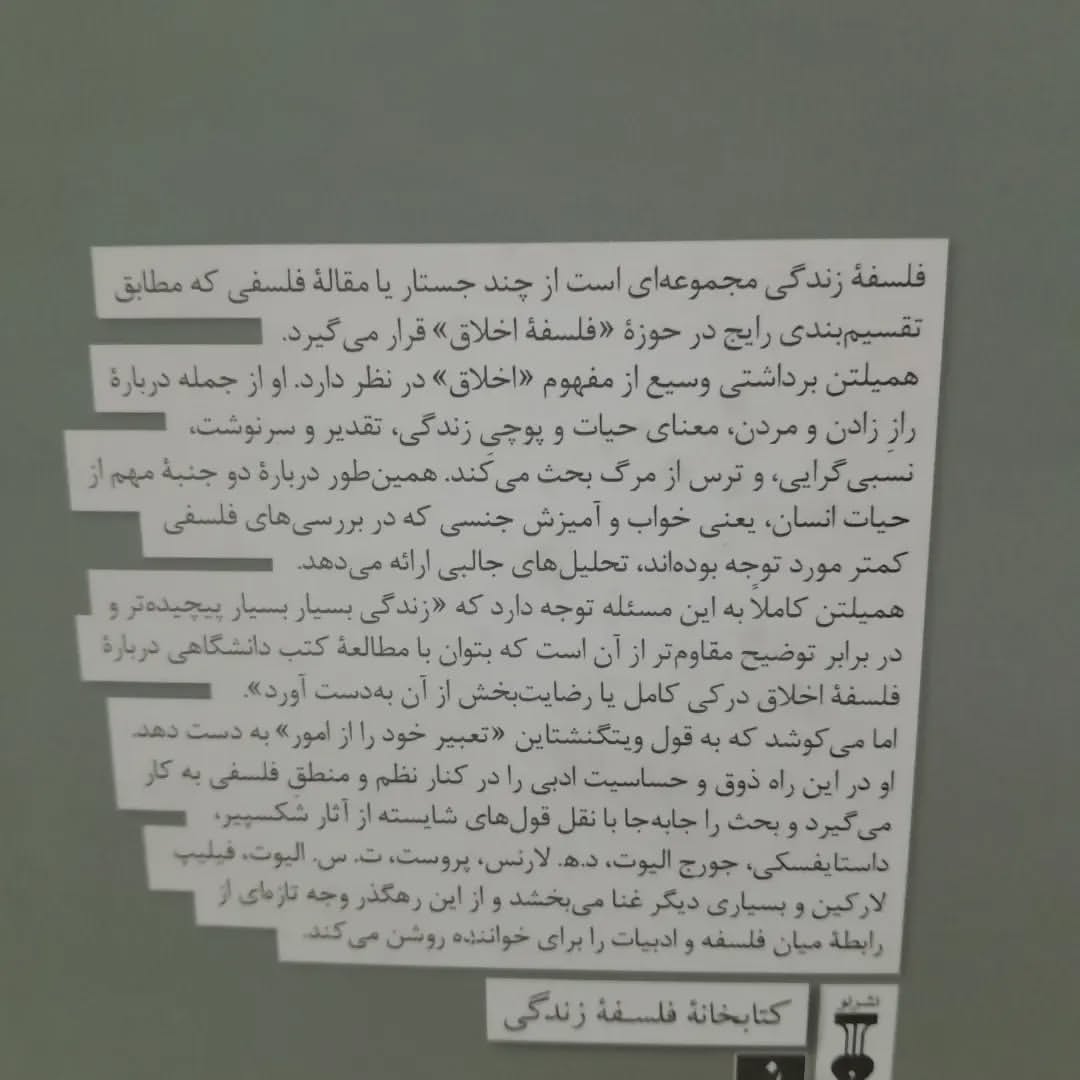 فلسفهٔ زندگی مجموعه‌ای است از چند جستار یا مقالهٔ فلسفی که مطابق
تقسیم‌بندی رایج در حوزهٔ «فلسفهٔ اخلاق» قرار می‌گیرد.
همیلتن برداشتی وسیع از مفهوم «اخلاق» در نظر دارد. او از جمله دربارهٔ
رازِ زادن و مردن، معنای حیات و پوچیِ زندگی، تقدیر و سرنوشت،
نسبی‌گرایی، و ترس از مرگ بحث می‌کند. همین‌طور دربارهٔ دو جنبهٔ مهم از
حیات انسان، یعنی خواب و آمیزش جنسی که در بررسی‌های فلسفی
کمتر مورد توجه بوده‌اند، تحلیل‌های جالبی ارائه می‌دهد.
همیلتن کاملاً به این مسئله توجه دارد که «زندگی بسیار بسیار پیچیده‌تر و
در برابر توضیح مقاوم‌تر از آن است که بتوان با مطالعهٔ کتب دانشگاهی دربارهٔ
فلسفهٔ اخلاق درکی کامل یا رضایت‌بخش از آن به‌دست آورد».
اما می‌کوشد که به قول ویتگنشتاین «تعبیر خود را از امور» به دست دهد.
او در این راه ذوق و حساسیت ادبی را در کنار نظم و منطقِ فلسفی به کار
می‌گیرد و بحث را جابه‌جا با نقل قول‌های شایسته از آثار شکسپیر،
داستایفسکی، جورج الیوت، د.ه‍. لارنس، پروست، ت. س. الیوت، فیلیپ
لارکین و بسیاری دیگر غنا می‌بخشد و از این رهگذر وجه تازه‌ای از
رابطهٔ میان فلسفه و ادبیات را برای خواننده روشن می‌کند.
نشرنو
کتابخانهٔ فلسفهٔ زندگی